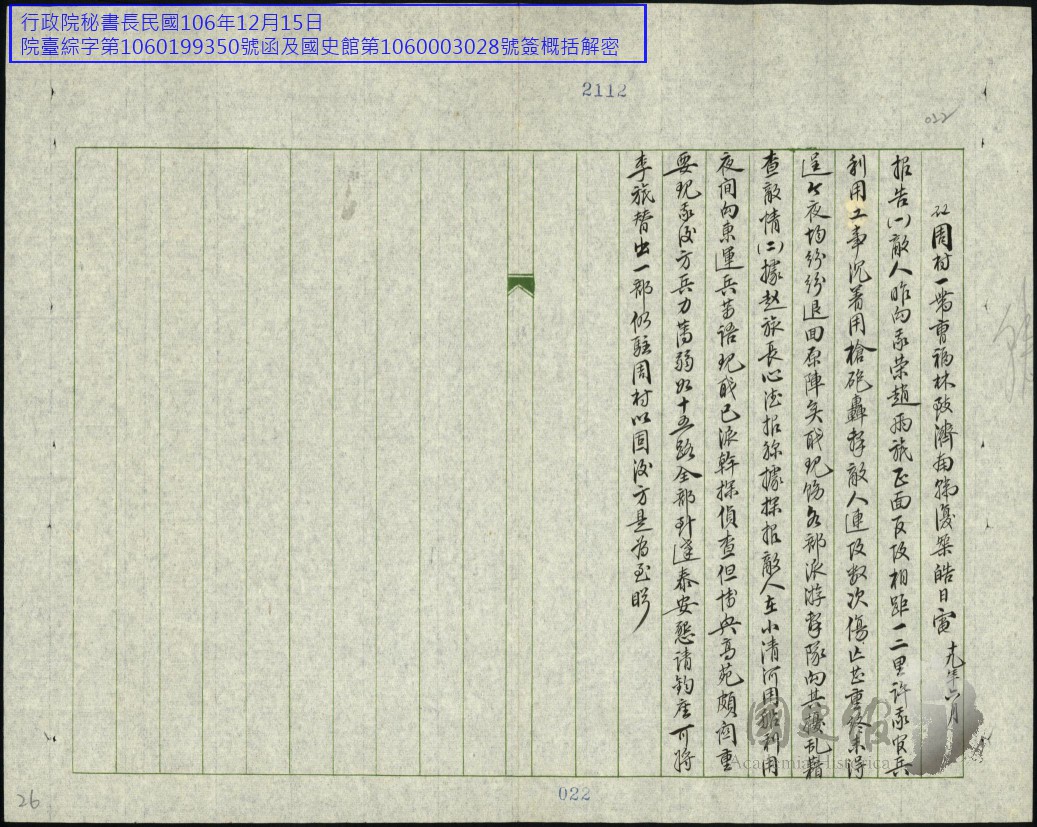 行政院秘書長民國106年12月15日
院臺綜字第1060199350號函及國史館第1060003028號簽概括解密
2112
022
周村一帶曹福林致濟南韓復榘皓日電 十九年六月
报告(一)敵人昨向我榮趙兩旅正面反攻相距一二里許我官兵
利用工事沉着用槍砲轟擊敵人連攻数次傷亡甚重終未得
逞入夜均纷纷退回原陣矣职現飭各部派游擊隊向其擾乱藉
查敵情(二)據赵旅長心德报称據探报敵人在小清河用船利用
夜间向東運兵等語現职已派幹探偵查但博興高苑頗关重
要現我後方兵力薄弱如十五路全部到達泰安懇请钧座可將
李旅替出一部份駐周村以固後方是为至盼
國史館
Academia Historica
022
26